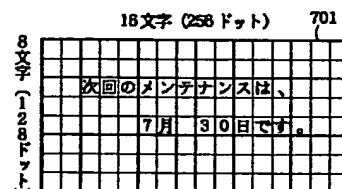 16文字 (256ドット) 701
8文字(128ドット)
次回のメンテナンスは、
7月 30日です。